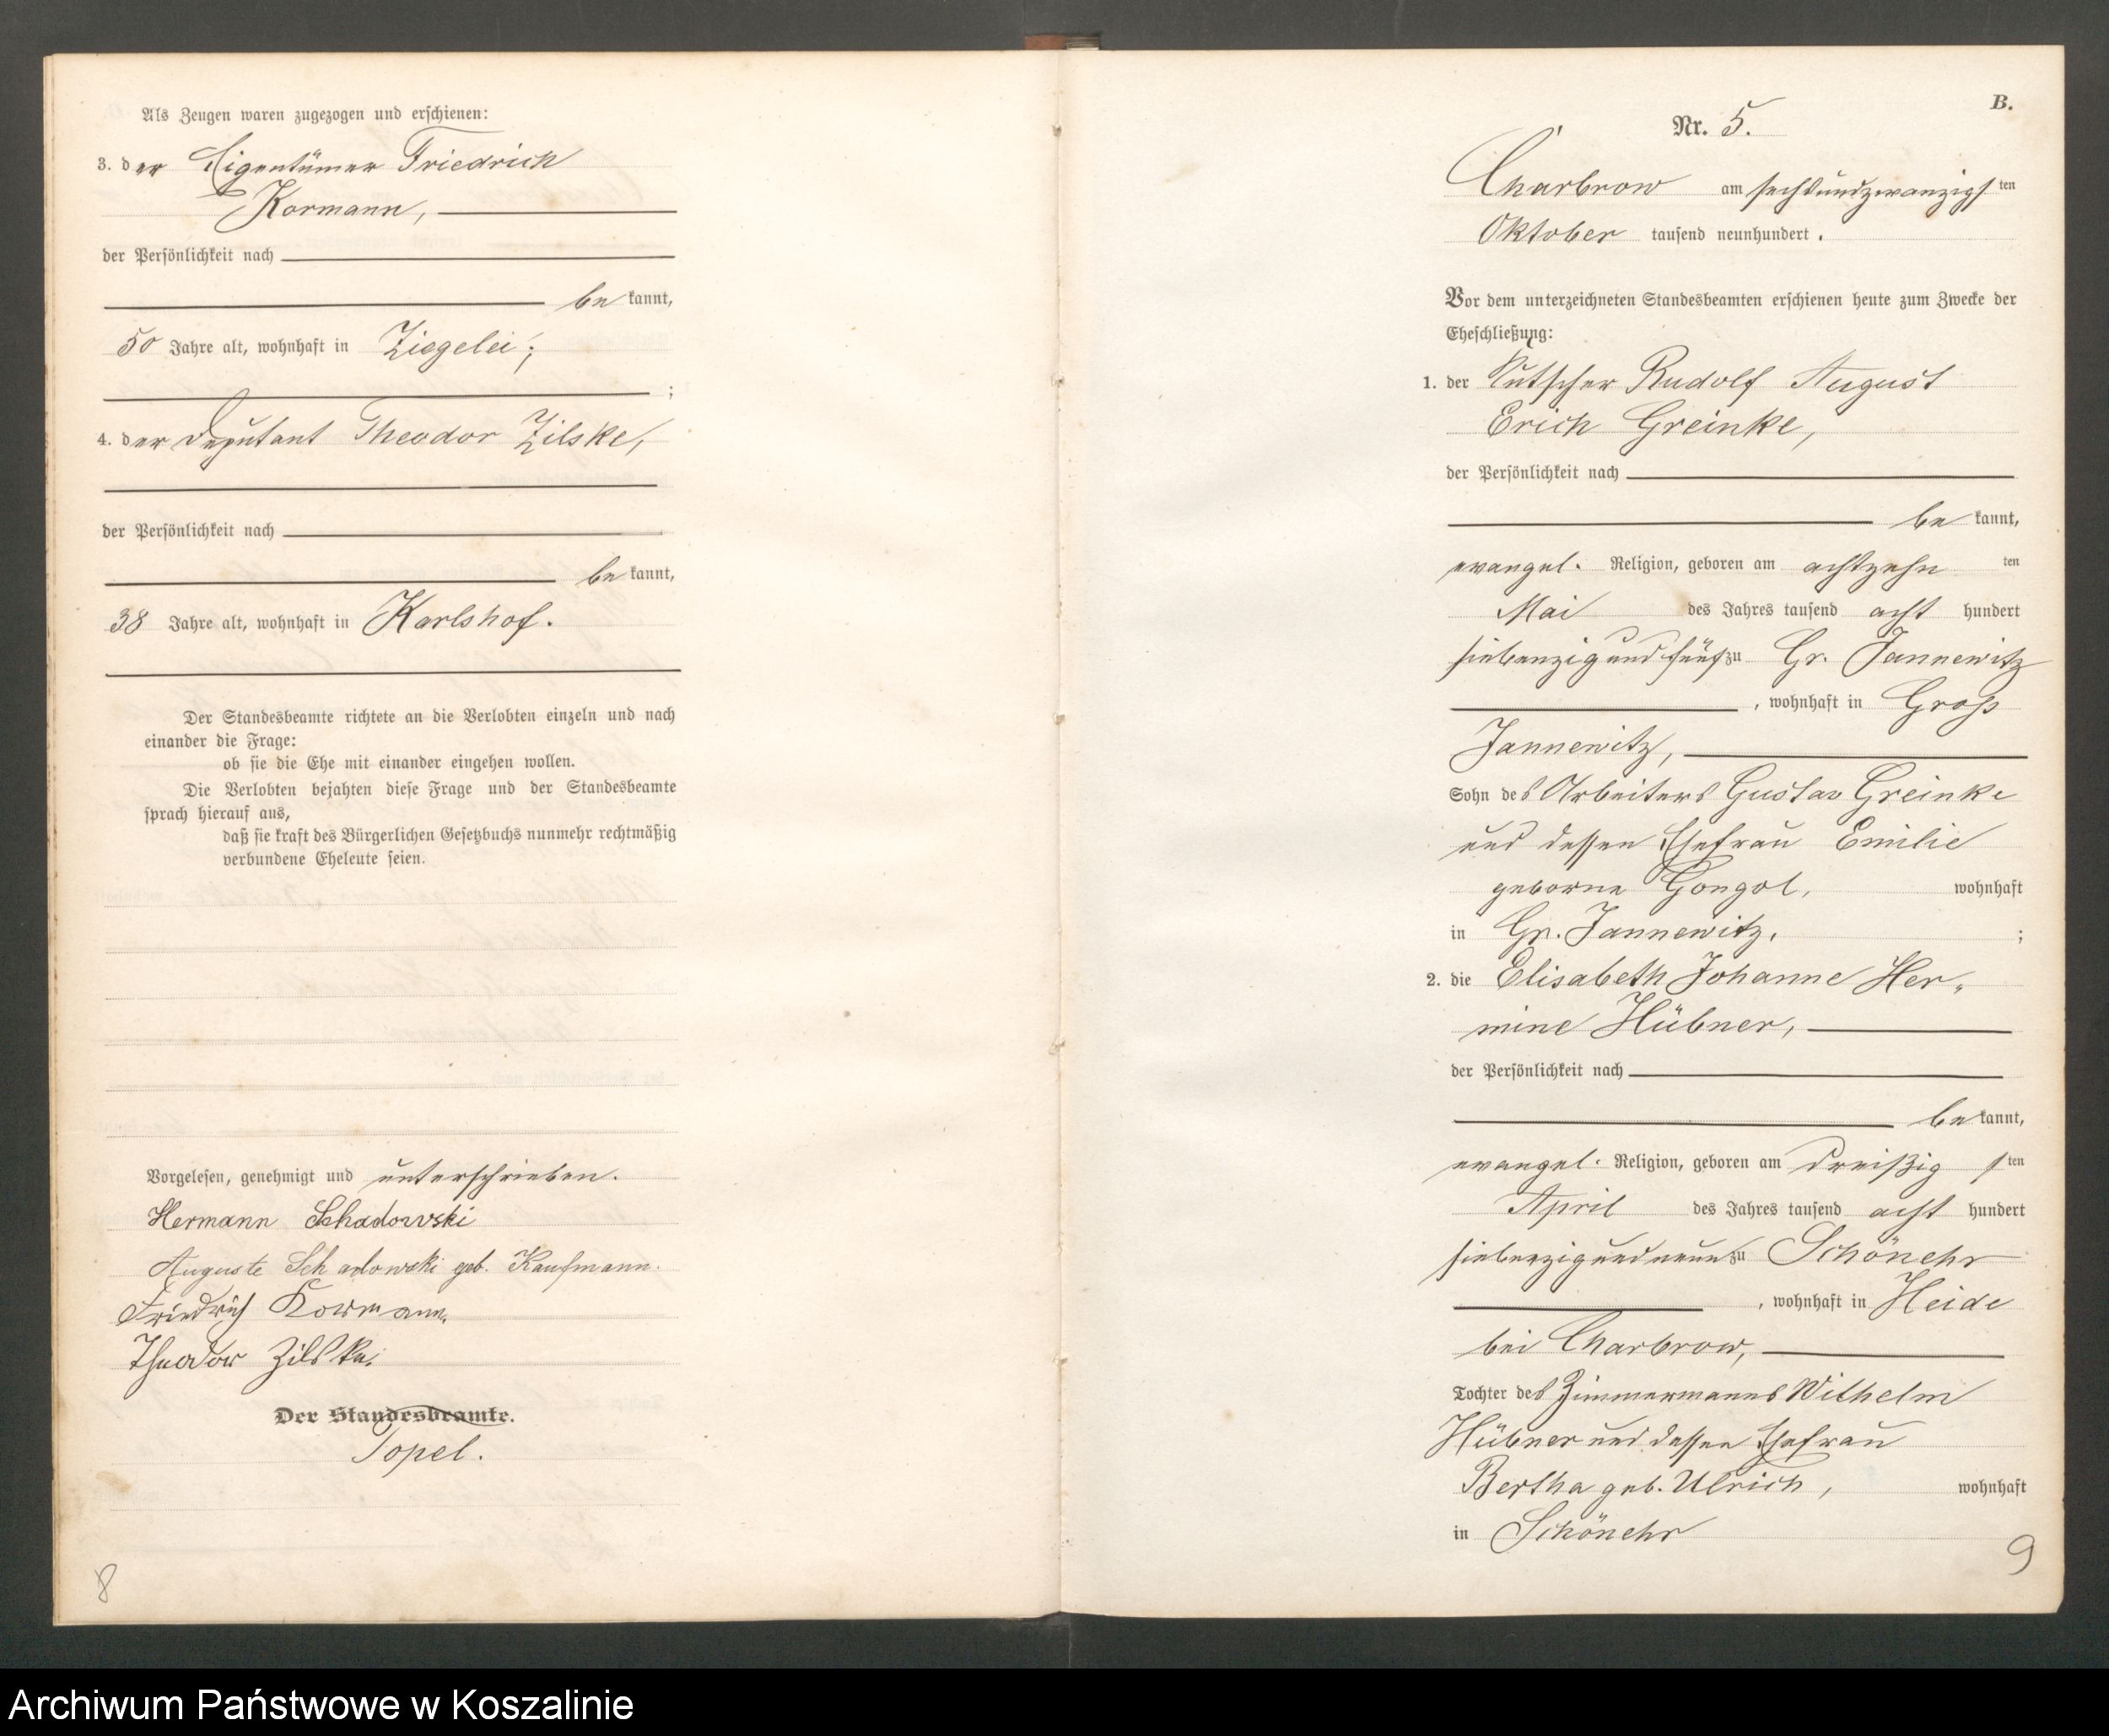 Als Zeugen waren zugezogen und erschienen:
3. der Eigentümer Friedrich
Kormann,
der Persönlichkeit nach
be kannt,
50 Jahre alt, wohnhaft in Ziegelei;
;
4. der Deputant Theodor Zilske,
der Persönlichkeit nach
be kannt,
38 Jahre alt, wohnhaft in Karlshof.
Der Standesbeamte richtete an die Verlobten einzeln und nach
einander die Frage:
ob sie die Ehe mit einander eingehen wollen.
Die Verlobten bejahten diese Frage und der Standesbeamte
sprach hierauf aus,
daß sie kraft des Bürgerlichen Gesetzbuchs nunmehr rechtmäßig
verbundene Eheleute seien.
Vorgelesen, genehmigt und unterschrieben.
Hermann Schadowski
Auguste Schadowski geb. Kaufmann.
Friedrich Kormann.
Theodor Zilske.
Der Standesbeamte.
Topel.
8
B.
Nr. 5.
Charbrow am sechsundzwanzigsten
Oktober tausend neunhundert.
Vor dem unterzeichneten Standesbeamten erschienen heute zum Zwecke der
Eheschließung:
1. der Kutscher Rudolf August
Erich Greinke,
der Persönlichkeit nach
be kannt,
evangel. Religion, geboren am achtzehn ten
Mai des Jahres tausend acht hundert
siebenzig und fünf zu Gr. Jannewitz
, wohnhaft in Gross
Jannewitz,
Sohn des Arbeiters Gustav Greinke
und dessen Ehefrau Emilie
geborne Gongol, wohnhaft
in Gr. Jannewitz. ;
2. die Elisabeth Johanne Her-
mine Hübner,
der Persönlichkeit nach
be kannt,
evangel. Religion, geboren am dreißig sten
April des Jahres tausend acht hundert
siebenzig und neun zu Schönehr
, wohnhaft in Heide
bei Charbrow,
Tochter des Zimmermanns Wilhelm
Hübner und dessen Ehefrau
Bertha geb. Ulrich, wohnhaft
in Schönehr
9
Archiwum Państwowe w Koszalinie